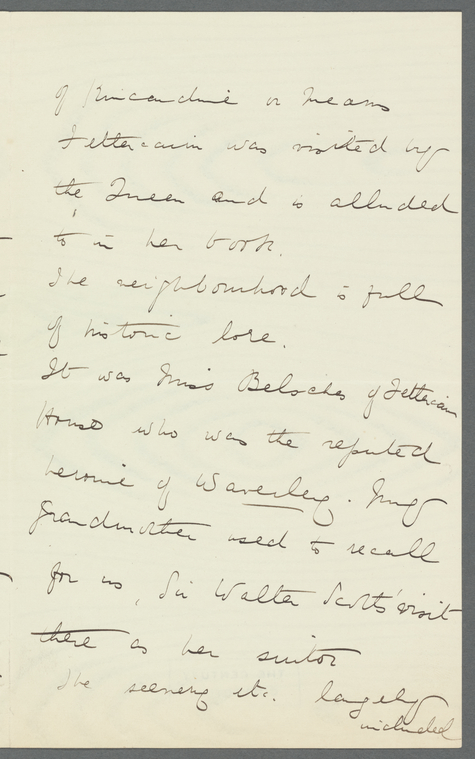 of Kincardine or Mearns
Fettercairn was visited by
the Queen and is alluded
to in her book.
The neighbourhood is full
of historic lore.
It was Miss Belsches of Fettercairn
House who was the reputed
heroine of Waverley. My
Grandmother used to recall
for us, Sir Walter Scott's visit
there as her suitor
The scenery etc. largely
included